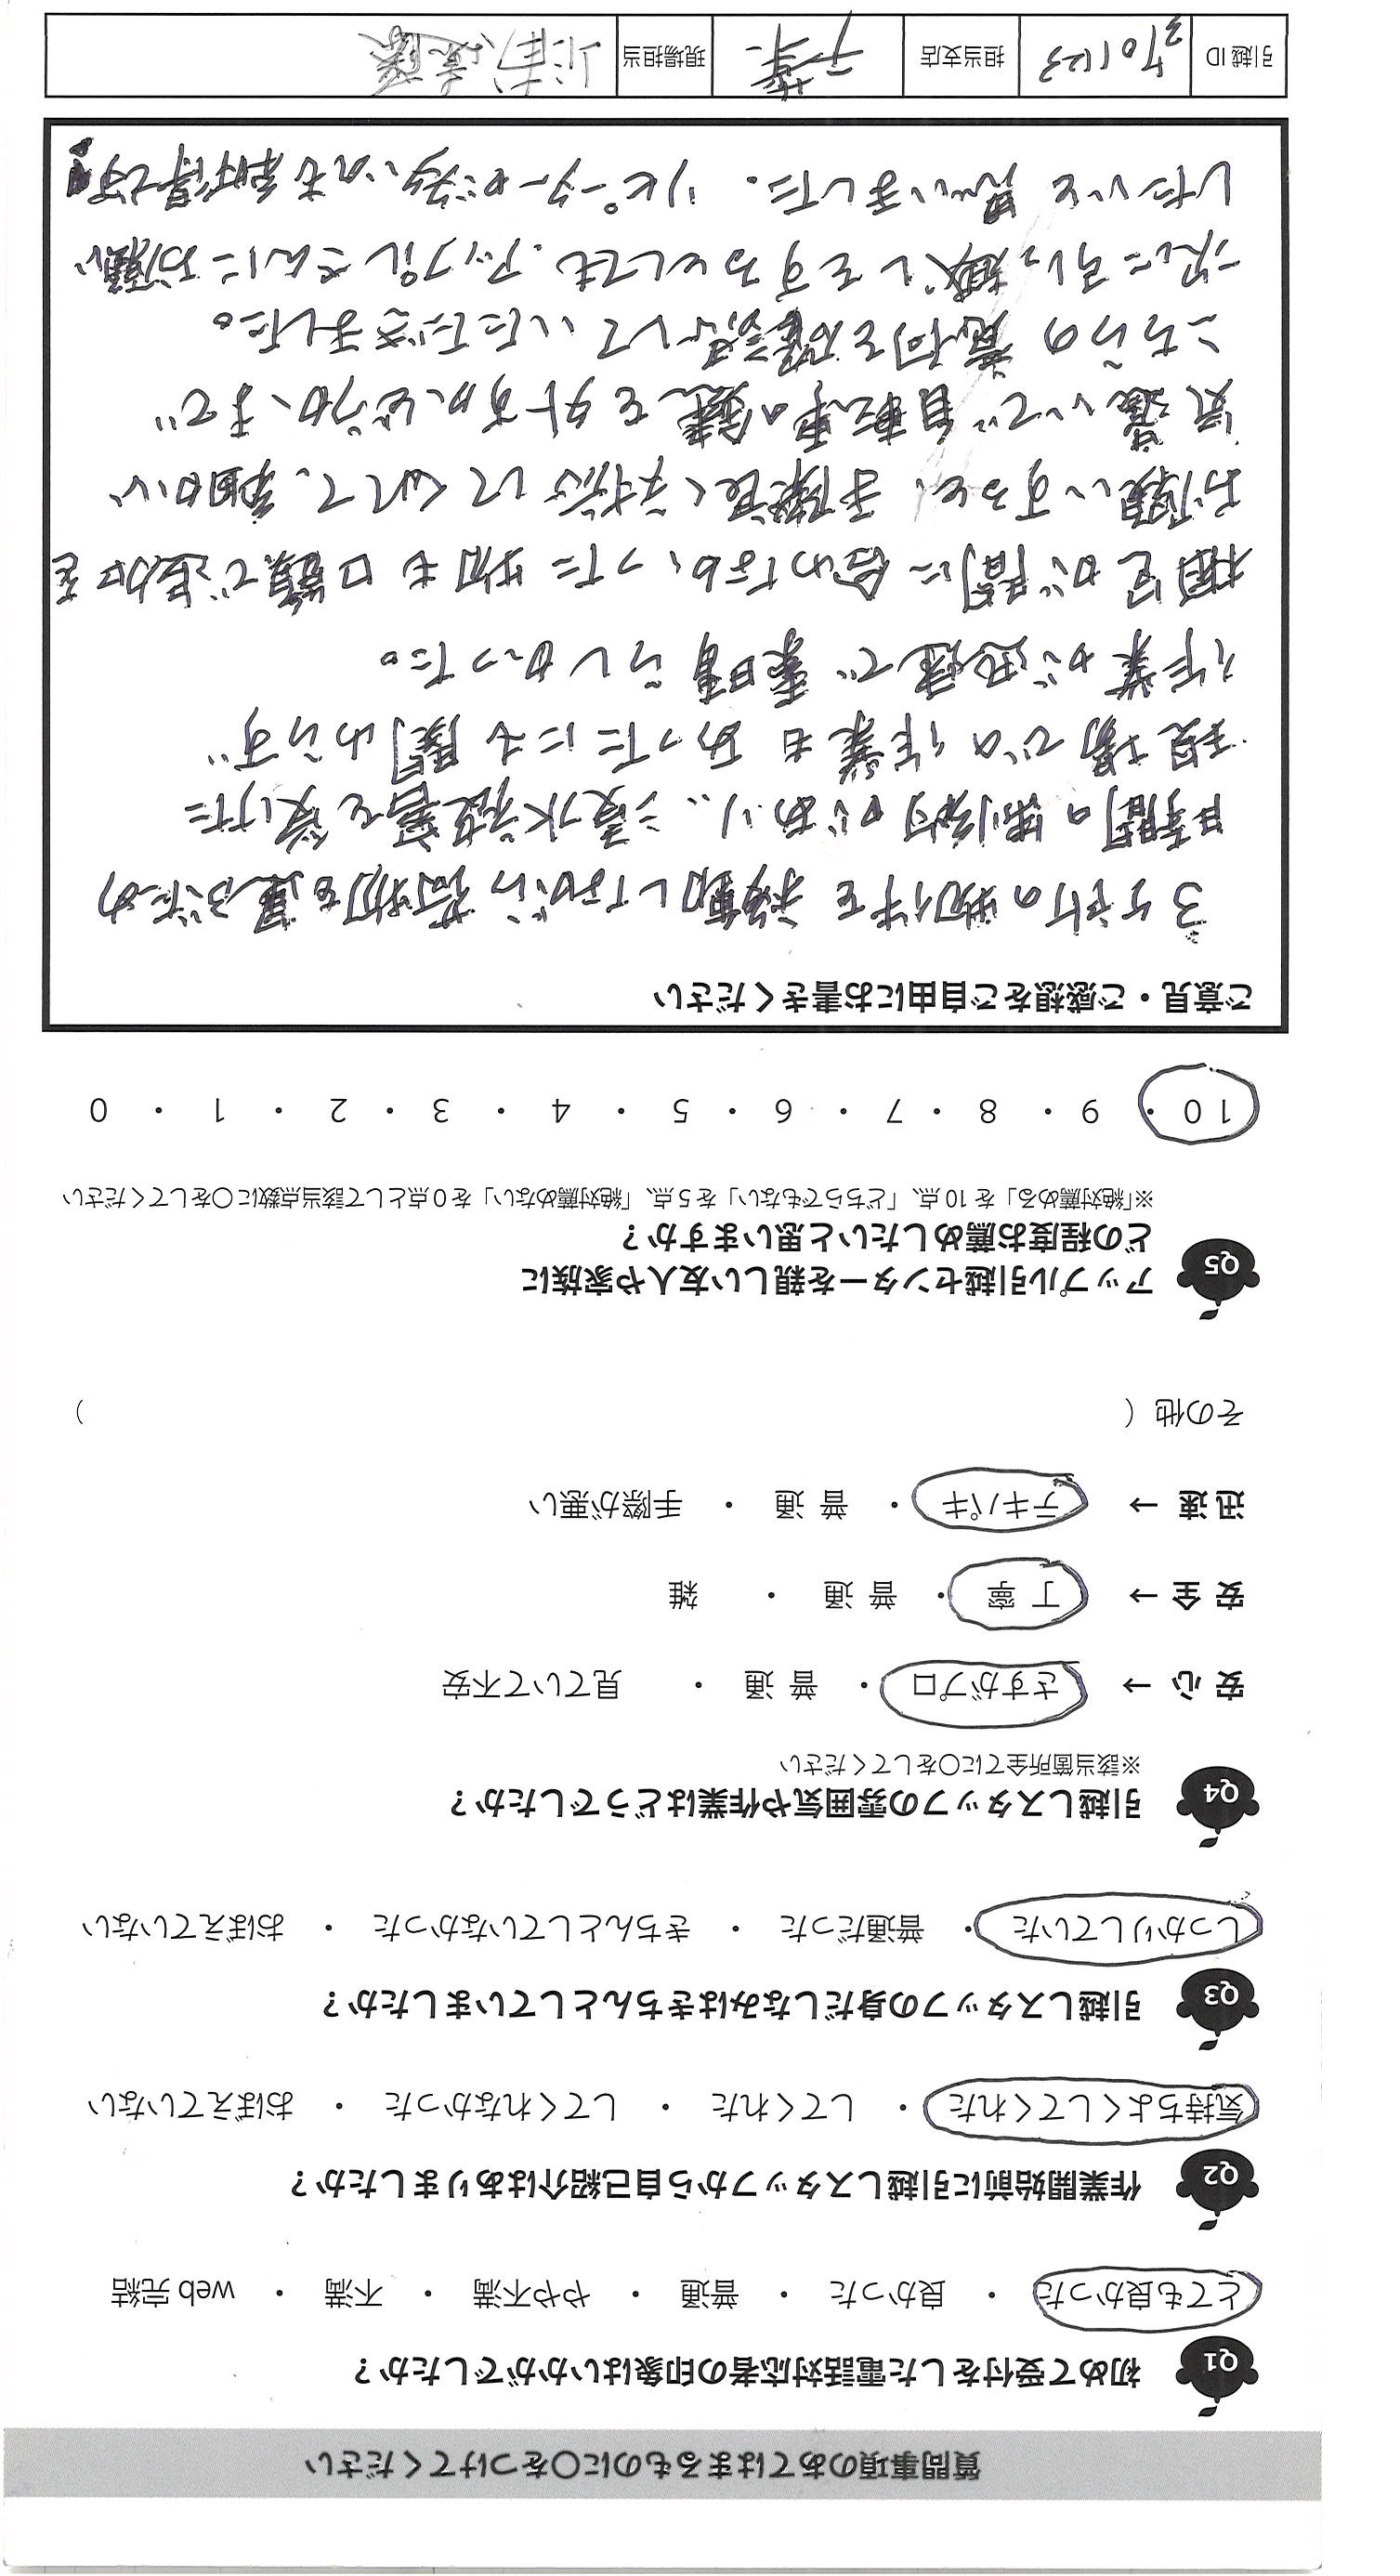 質問事項のあてはまるものに〇をつけてください
Q1 初めて受付をした電話対応者の印象はいかがでしたか？
とても良かった ・ 良かった ・ 普通 ・ やや不満 ・ 不満 ・ web 完結
Q2 作業開始前に引越しスタッフから自己紹介はありましたか？
気持ちよくしてくれた ・ してくれた ・ してくれなかった ・ おぼえていない
Q3 引越しスタッフの身だしなみはきちんとしていましたか？
しっかりしていた ・ 普通だった ・ きちんとしていなかった ・ おぼえていない
Q4 引越しスタッフの雰囲気や作業はどうでしたか？
※該当箇所全てに〇をしてください
安 心 → さすがプロ ・ 普 通 ・ 見ていて不安
安 全 → 丁 寧 ・ 普 通 ・ 雑
迅 速 → テキパキ ・ 普 通 ・ 手際が悪い
その他（ ）
Q5 アップル引越センターを親しい友人や家族に
どの程度お薦めしたいと思いますか？
※「絶対薦める」を 10 点、「どちらでもない」を 5 点、「絶対薦めない」を 0 点として該当点数に〇をしてください
10 ・ 9 ・ 8 ・ 7 ・ 6 ・ 5 ・ 4 ・ 3 ・ 2 ・ 1 ・ 0
ご意見・ご感想をご自由にお書きください
3ヶ所の物件を移動しながら荷物を運ぶため
時間の制約があり、浸水被害を受けた
現場での作業もあったにも関わらず
作業が迅速で素晴らしかった。
梱包が間に合わなかった物も口頭で追加を
お願いすると、手際良く対応してくれて、細かい
気遣いで自転車の鍵を外すかどうか、まで
こちらの意向を確認していただきました。
次に引っ越しをするとしても、アップルさんにお願い
したいと思いました。リピーターが多いのも納得です!
引越 ID 担当支店 千葉 現場担当